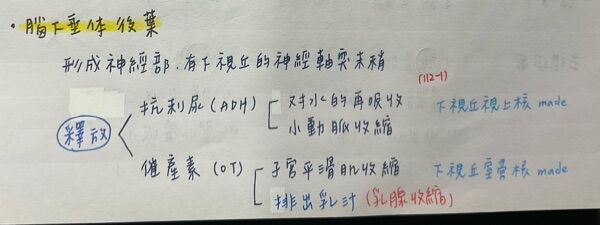 ・腦下垂体後葉
形成神經部.有下視丘的神經軸突末稍
(112-1)
釋放
抗利尿(ADH) 对水的再吸收 下視丘視上核 made
小動脈收縮
催產素(OT) 子宮平滑肌收縮 下視丘室旁核 made
排出乳汁(乳腺收縮)